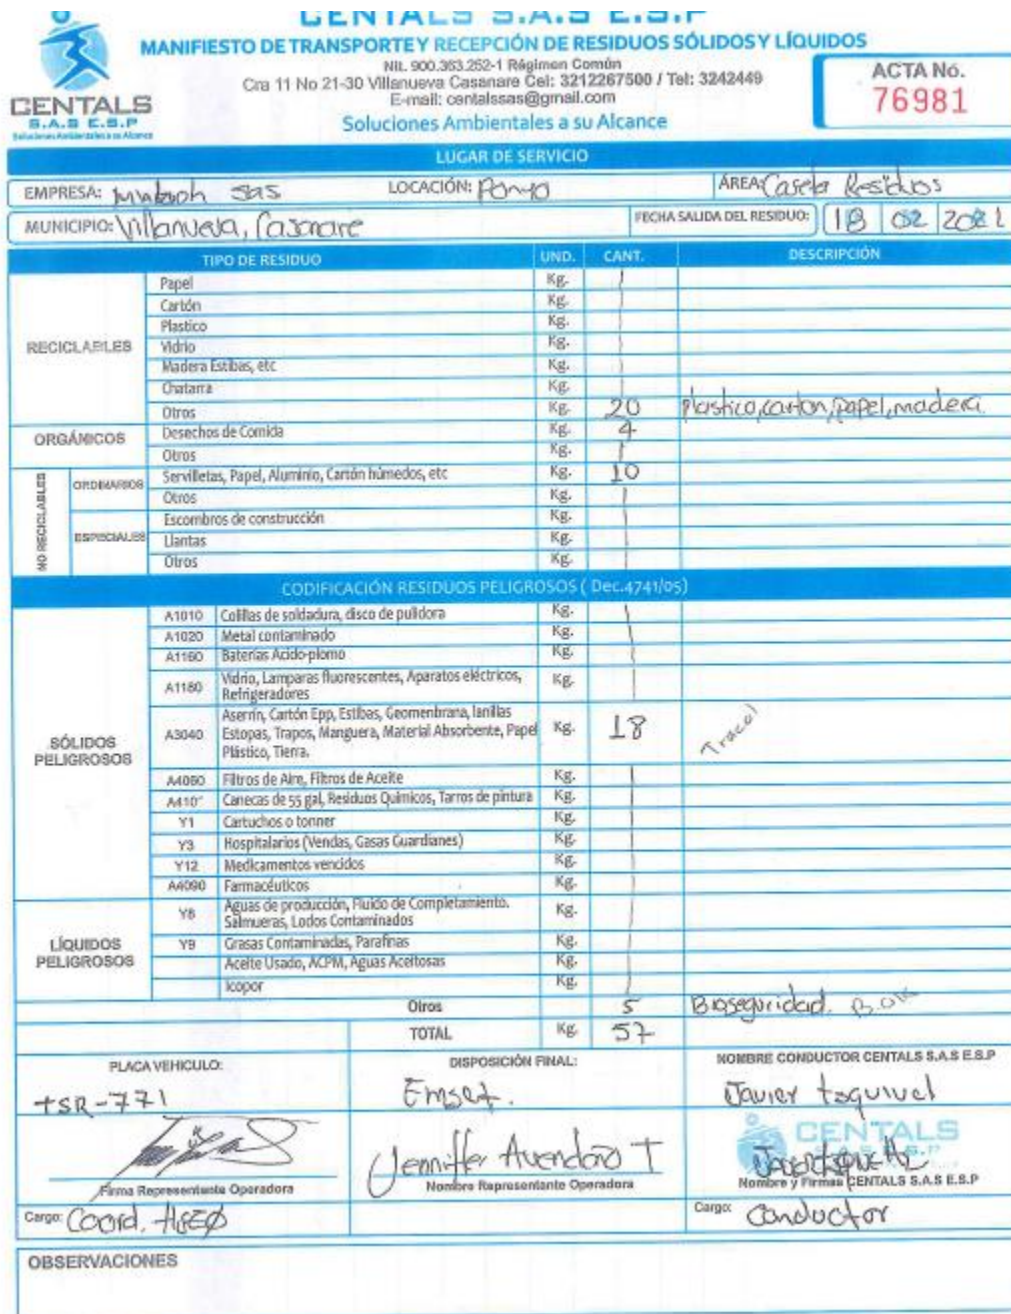 CENTALS S.A.S E.S.P
MANIFIESTO DE TRANSPORTE Y RECEPCIÓN DE RESIDUOS SÓLIDOS Y LÍQUIDOS
Nit. 900.363.252-1 Régimen Común
Cra 11 No 21-30 Villanueva Casanare Cel: 3212267500 / Tel: 3242449
E-mail: centalssas@gmail.com
Soluciones Ambientales a su Alcance
CENTALS
S.A.S E.S.P
Soluciones Ambientales a su Alcance
ACTA No.
76981
LUGAR DE SERVICIO
EMPRESA: SAS LOCACIÓN: ÁREA: Caseta Residuos
MUNICIPIO: Villanueva, Casanare FECHA SALIDA DEL RESIDUO: 18 02 2021
TIPO DE RESIDUO UND. CANT. DESCRIPCIÓN
RECICLABLES
Papel Kg.
Cartón Kg.
Plastico Kg.
Vidrio Kg.
Madera Estibas, etc Kg.
Chatarra Kg.
Otros Kg. 20 Plastico, carton, papel, madera
ORGÁNICOS
Desechos de Comida Kg. 4
Otros Kg.
NO RECICLABLES
ORDINARIOS
Servilletas, Papel, Aluminio, Cartón húmedos, etc Kg. 10
Otros Kg.
ESPECIALES
Escombros de construcción Kg.
Llantas Kg.
Otros Kg.
CODIFICACIÓN RESIDUOS PELIGROSOS ( Dec.4741/05)
SÓLIDOS PELIGROSOS
A1010 Colillas de soldadura, disco de pulidora Kg.
A1020 Metal contaminado Kg.
A1160 Baterías Acido-plomo Kg.
A1180 Vidrio, Lamparas fluorescentes, Aparatos eléctricos, Refrigeradores Kg.
A3040 Aserrín, Cartón Epp, Estibas, Geomenbrana, lanillas
Estopas, Trapos, Manguera, Material Absorbente, Papel
Plástico, Tierra. Kg. 18
A4060 Filtros de Aire, Filtros de Aceite Kg.
A410 Canecas de 55 gal, Residuos Quimicos, Tarros de pintura Kg.
Y1 Cartuchos o tonner Kg.
Y3 Hospitalarios (Vendas, Gasas Guardianes) Kg.
Y12 Medicamentos vencidos Kg.
A4090 Farmacéuticos Kg.
LÍQUIDOS PELIGROSOS
Y8 Aguas de producción, Fluido de Completamiento.
Salmueras, Lodos Contaminados Kg.
Y9 Grasas Contaminadas, Parafinas Kg.
Aceite Usado, ACPM, Aguas Aceitosas Kg.
Icopor Kg.
Otros 5 Bioseguridad.
TOTAL Kg. 57
PLACA VEHICULO: DISPOSICIÓN FINAL: NOMBRE CONDUCTOR CENTALS S.A.S E.S.P
TSR-771 Emset. Javier Esquivel
CENTALS
Jenniffer Avendaño T
Firma Representante Operadora Nombre Representante Operadora Nombre y Firmas CENTALS S.A.S E.S.P
Cargo: Coord. HSEQ Cargo: Conductor
OBSERVACIONES